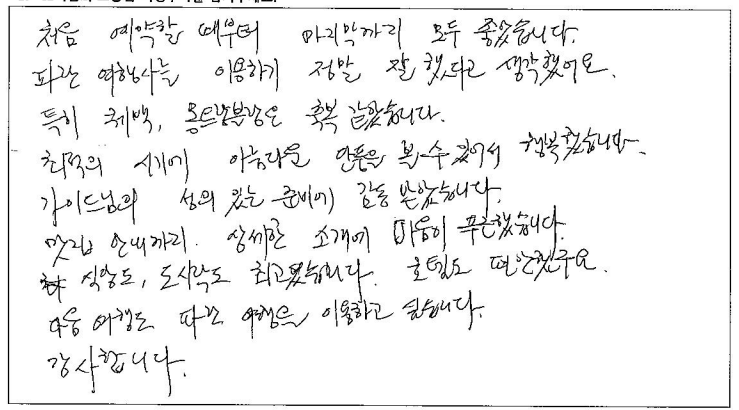 처음 예약할 때부터 마지막까지 모두 좋았습니다.
파란 여행사를 이용하기 정말 잘 했다고 생각했어요.
특히 퀘벡, 몽트랑블랑은 축복 같았습니다.
최적의 시기에 아름다운 단풍을 볼 수 있어서 행복했습니다.
가이드님의 성의 있는 준비에 감동 받았습니다.
맛집 안내까지. 상세한 소개에 마음이 푸근했습니다.
식당도, 도시락도 최고였습니다. 호텔도 편안했구요.
다음 여행도 파란 여행을 이용하고 싶습니다.
감사합니다.